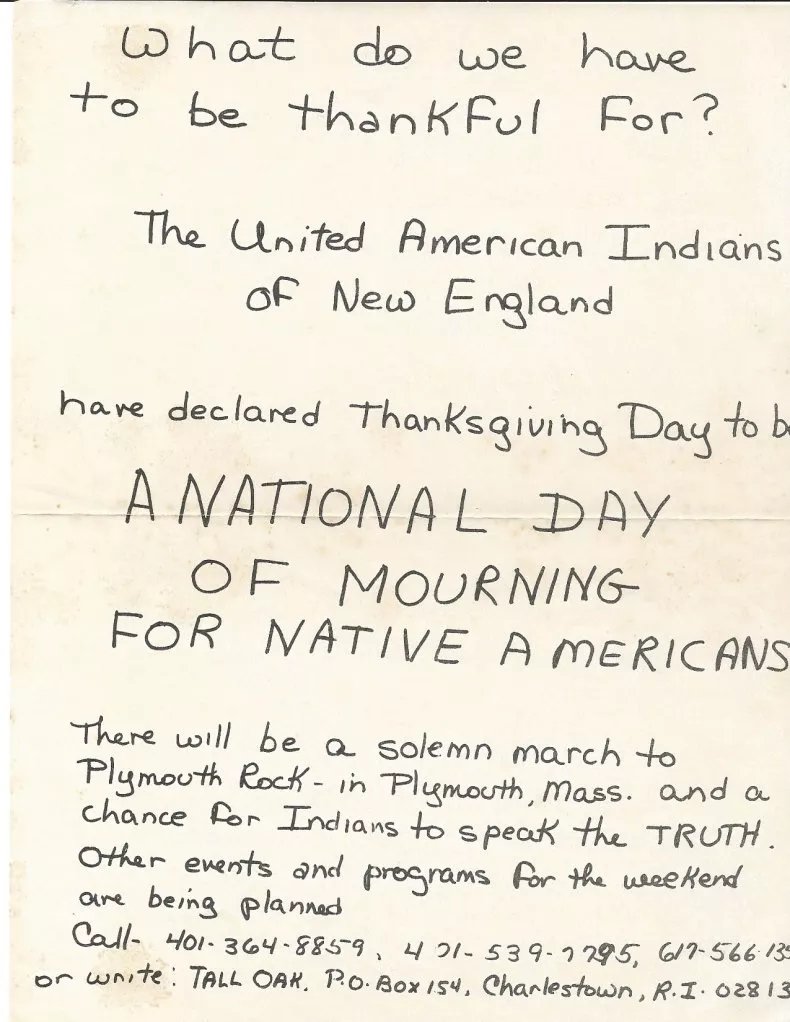 What do we have
to be thankful for?
The United American Indians
of New England
have declared Thanksgiving Day to
A NATIONAL DAY
OF MOURNING
FOR NATIVE AMERICANS
There will be a solemn march to
Plymouth Rock - in Plymouth, Mass. and a
chance for Indians to speak the TRUTH.
Other events and programs for the weekend
are being planned
Call- 401-364-8859, 617-566-135
or write: TALL OAK, P.O. Box 154, Charlestown, R.I. 02813